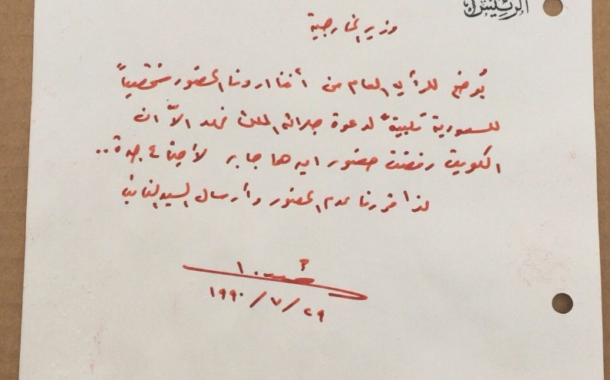 الرئيس
وزير الخارجية
يوضح للرأي العام من أننا اردنا الحضور شخصياً
للسعودية تلبيةً لدعوة جلالة الملك فهد الآ ان
الكويت رفضت حضور اميرها جابر لأجتماع جدة..
لذا قررنا عدم الحضور وأرسال السيد النائب
١٩٩٠/٧/٢٩